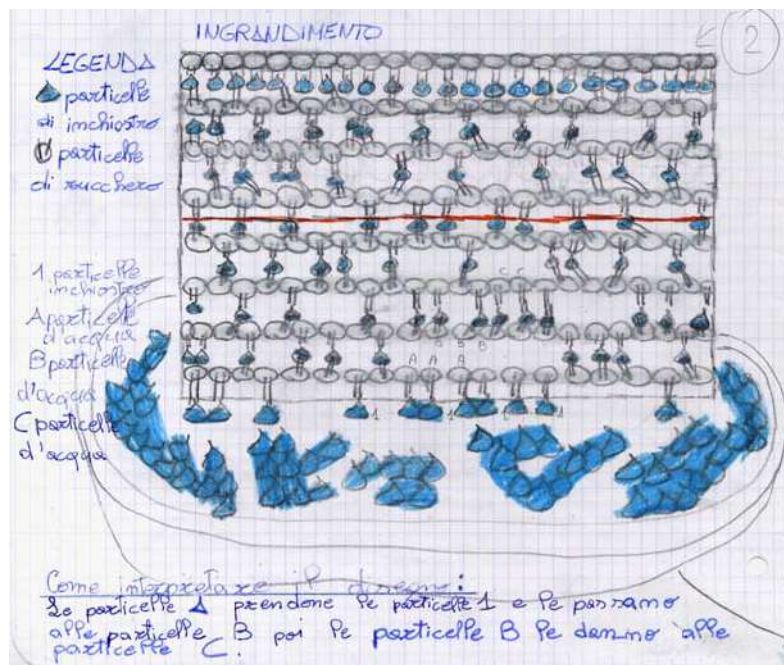 INGRANDIMENTO
2
LEGENDA
particelle
di inchiostro
particelle
di zucchero
1 particelle
inchiostro
A particelle
d'acqua
B particelle
d'acqua
C particelle
d'acqua
C C
B B B
A A A
1 1 1 1
Come interpretare il disegno:
Le particelle A prendono le particelle 1 e le passano
alle particelle B poi le particelle B le danno alle
particelle C.